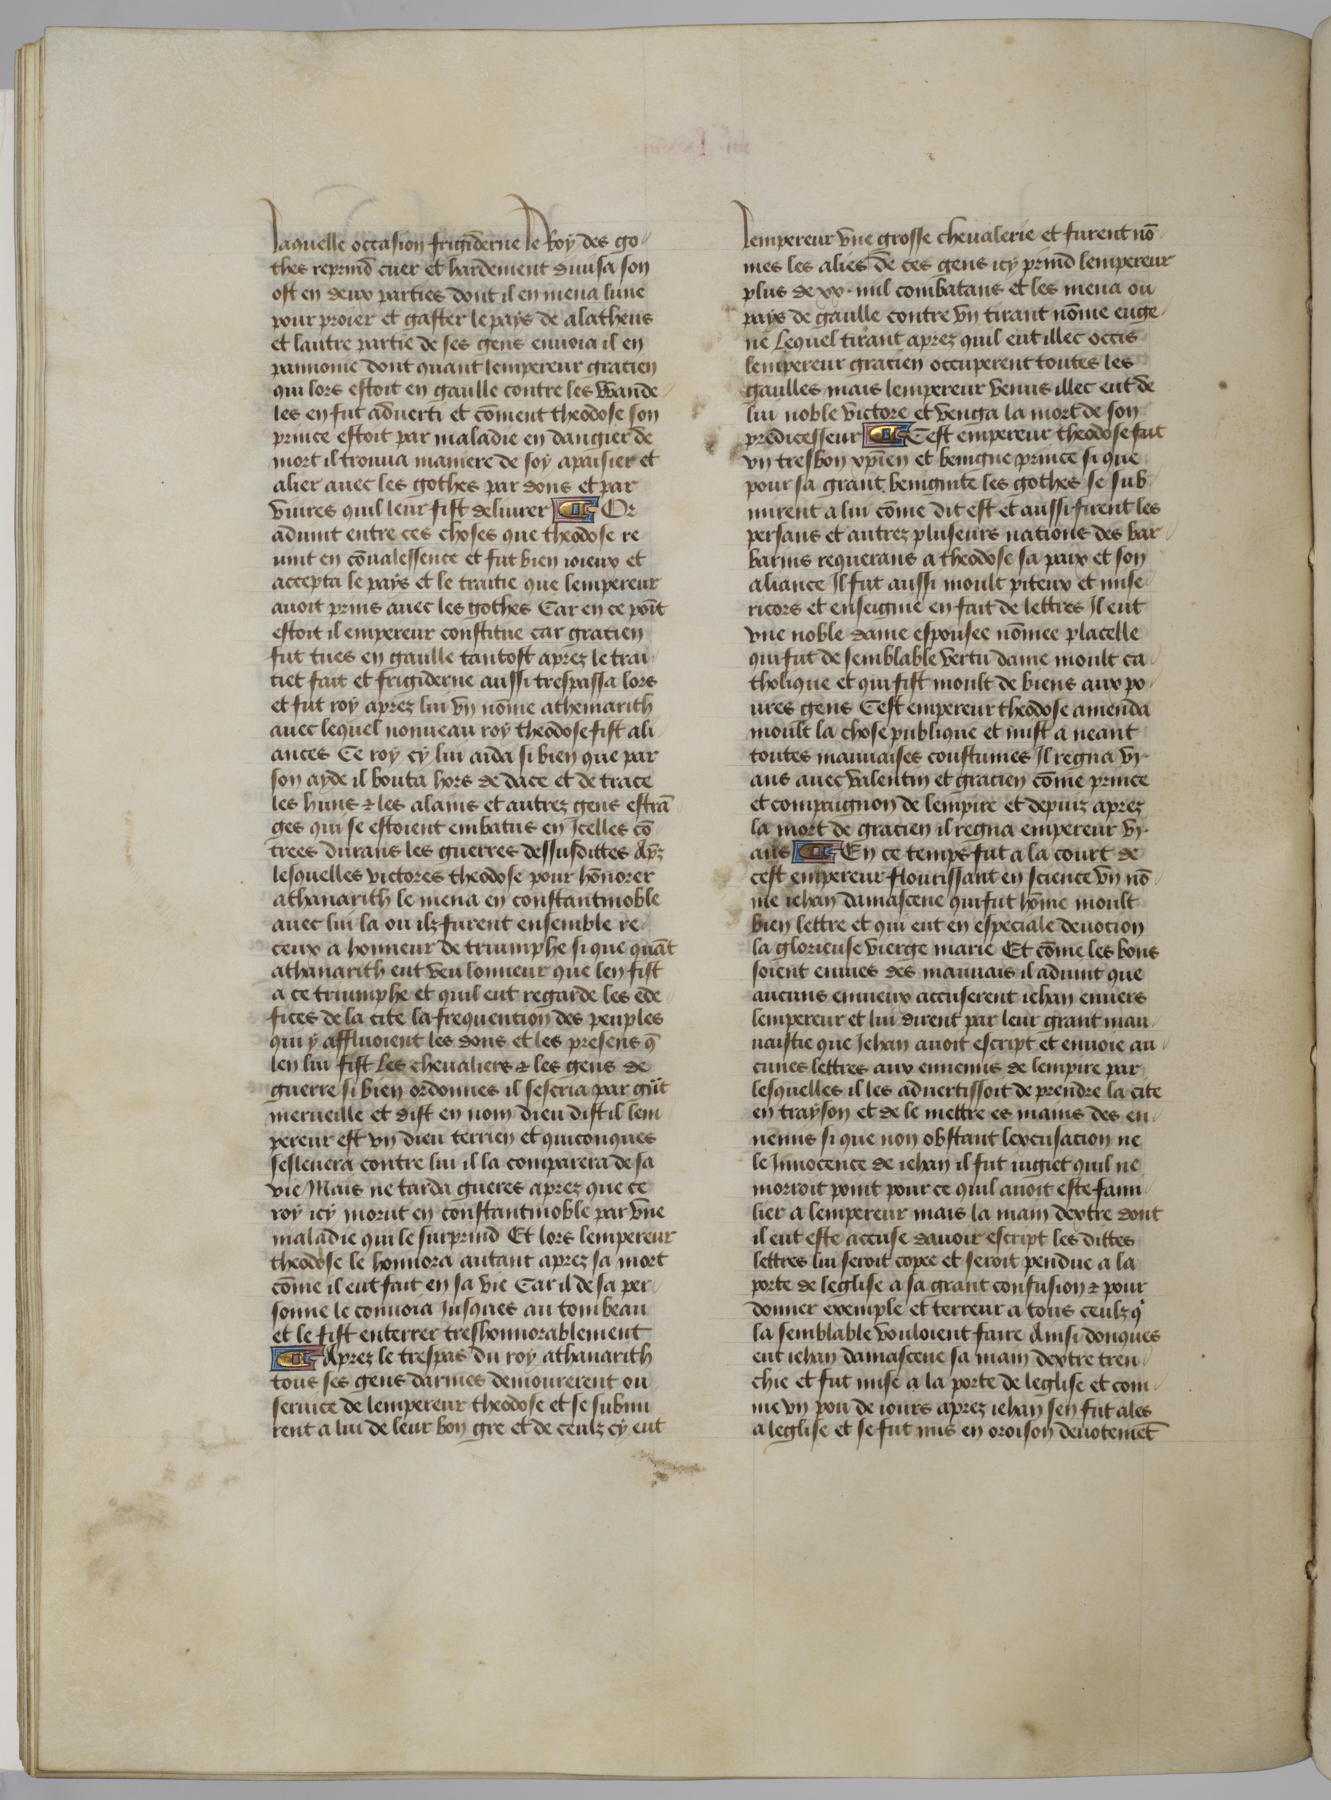 laquelle occasion frigiderne le Roy des go
thes reprind cuer et hardement diuisa son
ost en deux parties dont il en mena lune
pour proier et gaster le pays de alatheus
et lautre partie de ses gens enuoia il en
pannonie dont quant lempereur gracien
qui lors estoit en gaulle contre les wande
les en fut aduerti et cōment theodose son
prince estoit par maladie en dangier de
mort il trouua maniere de soy apaisier et
alier auec les gothes par dons et par
viures quil leur fist deliurer Or
aduint entre ces choses que theodose re
uint en cōualessence et fut bien ioieux et
accepta le pays et le traitie que lempereur
auoit prins auec les gothes Car en ce poīt
estoit il empereur constitue car gracien
fut tues en gaulle tantost aprez le trai
tiet fait et frigiderne aussi trespassa lors
et fut roy aprez lui vn nōme athemarith
auec lequel nouueau roy theodose fist ali
ances Ce roy cy lui aida si bien que par
son ayde il bouta hors de dace et de trace
les huns ⁊ les alains et autrez gens estrā
ges qui se estoient embatus en Icelles cō
trees durans les guerres dessusdittes Apz̄
lesquelles victores theodose pour hōnorer
athanarith le mena en constantinoble
auec lui la ou ilz furent ensemble re
ceux a honneur de triumphe si que quāt
athanarith eut veu lonneur que len fist
a ce triumphe et quil eut regarde les ede
fices de la cite la frequention des peuples
qui y affluoient les dons et les presens q̄
len lui fist Les cheualiers ⁊ les gens de
guerre si bien ordonnes il sescria par gūt
merueille et dist en nom dieu dist il lem
pereur est vn dieu terrien et quiconques
seslieuera contre lui il la comparera de sa
vie Mais ne tarda gueres aprez que ce
roy icy morut en constantinoble par vne
maladie qui le surprind Et lors lempereur
theodose le honnora autant aprez sa mort
cōme il eut fait en sa vie Car il de sa per
sonne le conuoia Jusques au tombeau
et le fist enterrer treshonnorablement
Aprez le trespas du roy athanarith
tous ses gens darmes demourerent ou
seruice de lempereur theodose et se submi
rent a lui de leur bon gre et de ceulz cy eut
lempereur vne grosse cheualerie et furent nō
mes les alies de ces gens icy prind lempereur
plus de xx. mil combatans et les mena ou
pays de gaulle contre vn tirant nōme euge
ne Lequel tirant aprez quil eut illec occis
lempereur gracien occuperent toutes les
gaulles mais lempereur venus illec eut de
lui noble victore et venga la mort de son
predicesseur Cest empereur theodose fut
vn tresbon xp̄ien et benigne prince si que
pour sa grant benignite les gothes se sub
mirent a lui cōme dit est et aussi firent les
persans et autrez pluseurs nations des bar
barins requerans a theodose sa paix et son
aliance Il fut aussi moult piteux et mise
ricors et enseignie en fait de lettres Il eut
vne noble dame espousee nōmee placelle
qui fut de semblable vertu dame moult ca
tholique et qui fist moult de biens aux po
ures gens Cest empereur theodose amenda
moult la chose publique et mist a neant
toutes mauuaises coustumes Il regna vj.
ans auec valentin et gracien cōme prince
et compaignon de lempire et depuiz aprez
la mort de gracien il regna empereur vj.
ans En ce temps fut a la court de
cest empereur flourissant en science vn nō
me iehan damascene qui fut hōme moult
bien lettre et qui eut en especiale deuocion
la glorieuse vierge marie Et cōme les bons
soient enuies des mauuais il aduint que
aucuns enuieux accuserent iehan enuers
lempereur et lui dirent par leur grant mau
uaistie que Jehan auoit escript et enuoie au
cunes lettres aux ennemis de lempire par
lesquelles il les aduertissoit de prendre la cite
en trayson et de le mettre es mains des en
nemis si que non obstant lexcusacion ne
le Innocence de iehan il fut iugiet quil ne
morroit point pour ce quil auoit este fami
lier a lempereur mais la main dextre dont
il eut este accuse dauoir escript les dittes
lettres lui seroit copee et seroit pendue a la
porte de leglise a sa grant confusion ⁊ pour
donner exemple et terreur a tous ceulz q̄
la semblable vouloient faire Ainsi donques
eut iehan damascene sa main dextre tren
chie et fut mise a la porte de leglise et com
me vn pou de iours aprez iehan sen fut ales
a leglise et se fut mis en oroison deuotemēt